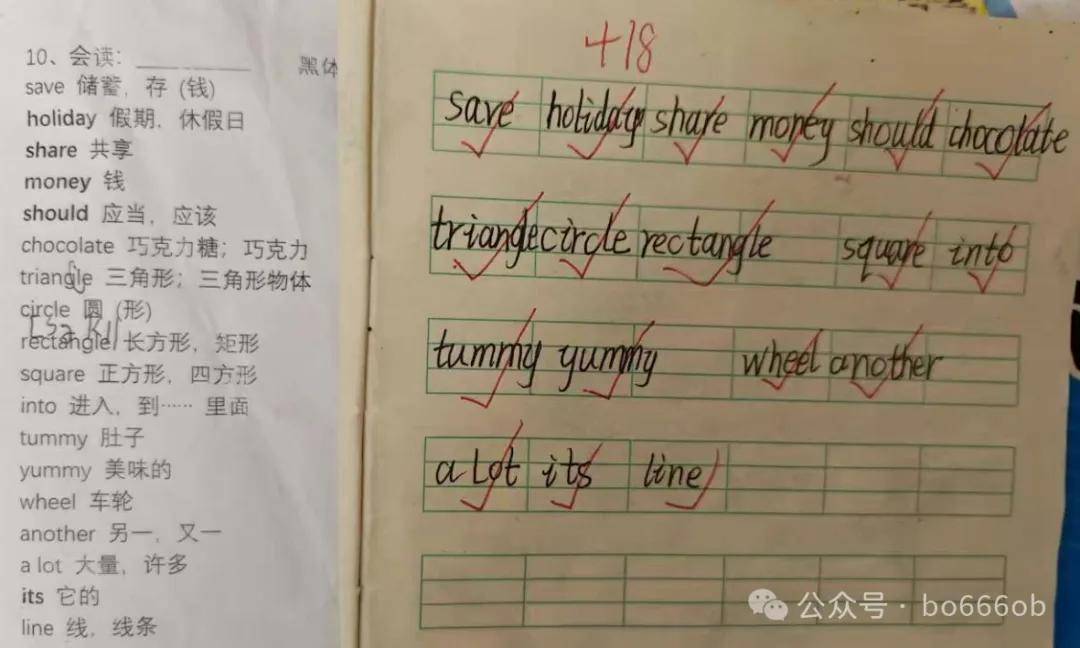 10、会读：
黑体
save 储蓄，存 (钱)
holiday 假期，休假日
share 共享
money 钱
should 应当，应该
chocolate 巧克力糖；巧克力
triangle 三角形；三角形物体
circle 圆 (形)
rectangle 长方形，矩形
square 正方形，四方形
into 进入，到…… 里面
tummy 肚子
yummy 美味的
wheel 车轮
another 另一，又一
a lot 大量，许多
its 它的
line 线，线条
+18
save holiday share money should chocolate
triangle circle rectangle square into
tummy yummy wheel another
a lot its line
公众号 · bo666ob